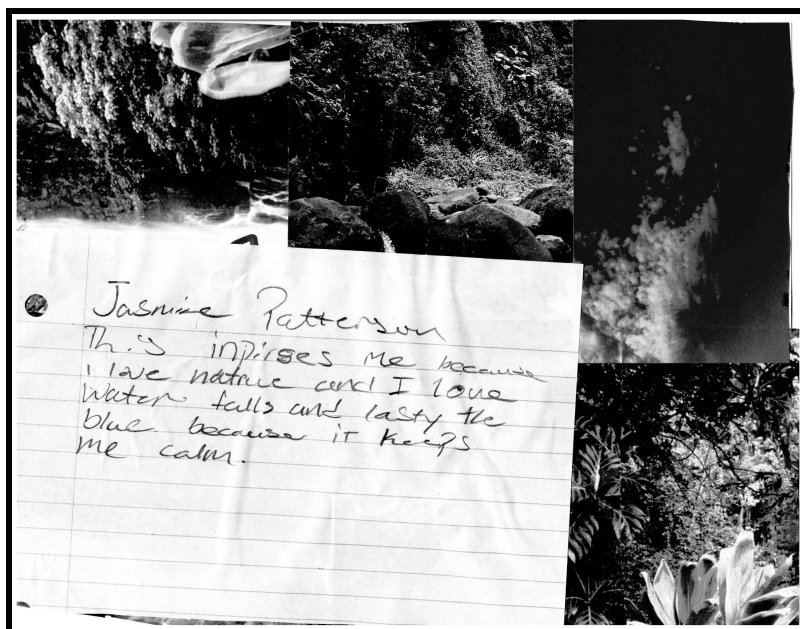 Jasmine Patterson
This inpirses me because
i love nature and I love
Water falls and lasty the
blue because it keeps
me calm.